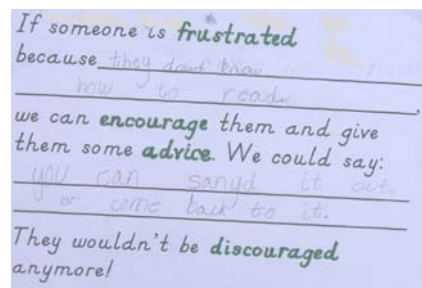 If someone is frustrated
because they dont know
how to read,
we can encourage them and give
them some advice. We could say:
you can sanyd it out.
or come back to it.
They wouldn't be discouraged
anymore!